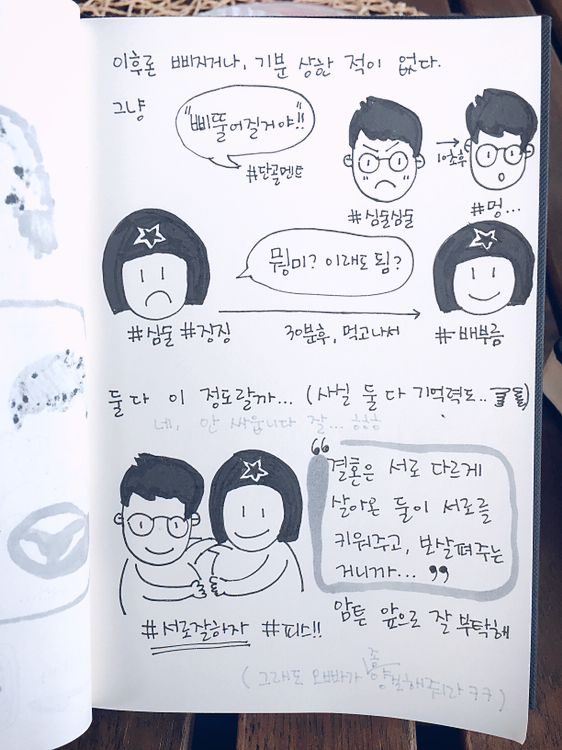 이후론 삐지거나, 기분 상한 적이 없다.
그냥
"삐뚤어질거야!!"
#단골멘트
→
1초후
#심술심술
#멍...
뭥미? 이래도 됨?
#심술 #징징
30분후, 먹고나서
#배부름
둘 다 이 정도랄까... (사실 둘 다 기억력도..ㅠㅠ)
네, 안 싸웁니다 잘... ㅎㅎㅎ
"결혼은 서로 다르게
살아온 둘이 서로를
키워주고, 보살펴주는
거니까..."
#서로잘하자 #피스!!
암튼 앞으로 잘 부탁해
(그래도 오빠가 좀 양보해줘라 ㅋㅋ)